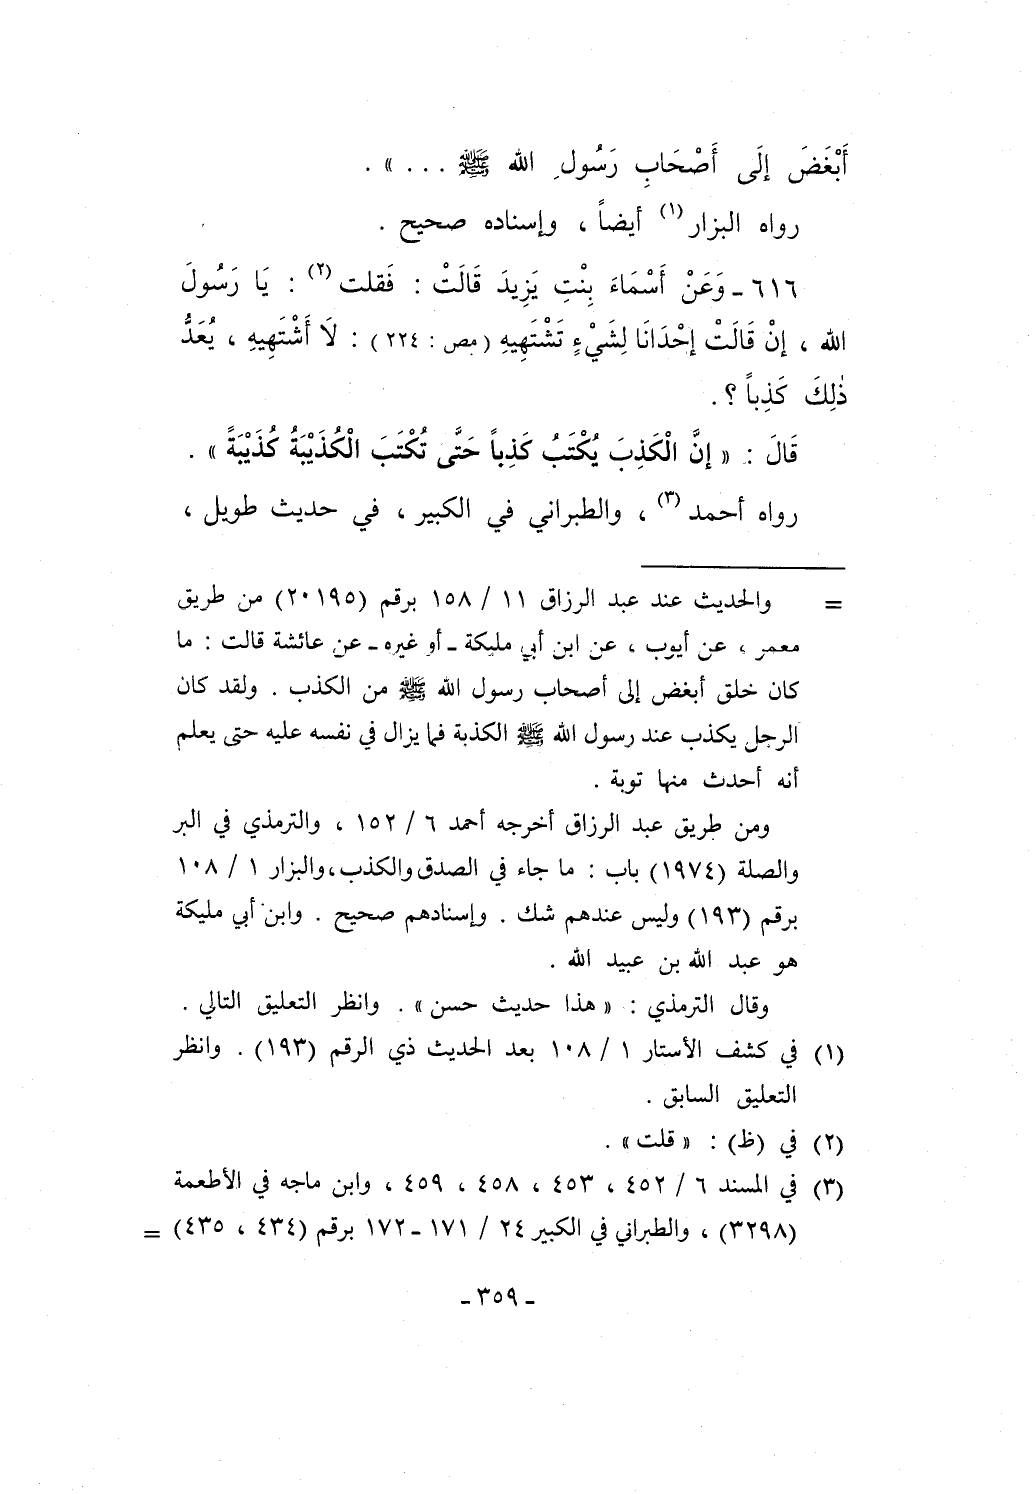 أَبْغَضَ إِلَى أَصْحَابِ رَسُولِ الله ﷺ ... » .
رواه البزار (١) أيضاً ، وإسناده صحيح .
٦١٦ ـ وَعَنْ أَسْمَاءَ بِنْتِ يَزِيدَ قَالَتْ : فَقلت (٢) : يَا رَسُولَ
الله ، إِنْ قَالَتْ إِحْدَانَا لِشَيْءٍ تَشْتَهِيهِ ( مص : ٢٢٤ ) : لَا أَشْتَهِيهِ ، يُعَدُّ
ذٰلِكَ كَذِباً ؟ .
قَالَ : « إِنَّ الْكَذِبَ يُكْتَبُ كَذِباً حَتَّى تُكْتَبَ الْكُذَيْبَةُ كُذَيْبَةً » .
رواه أحمد (٣) ، والطبراني في الكبير ، في حديث طويل ،
= والحديث عند عبد الرزاق ١١ / ١٥٨ برقم (٢٠١٩٥) من طريق
معمر ، عن أيوب ، عن ابن أبي مليكة ـ أو غيره ـ عن عائشة قالت : ما
كان خلق أبغض إلى أصحاب رسول الله ﷺ من الكذب . ولقد كان
الرجل يكذب عند رسول الله ﷺ الكذبة فما يزال في نفسه عليه حتى يعلم
أنه أحدث منها توبة .
ومن طريق عبد الرزاق أخرجه أحمد ٦ / ١٥٢ ، والترمذي في البر
والصلة (١٩٧٤) باب : ما جاء في الصدق والكذب، والبزار ١ / ١٠٨
برقم (١٩٣) وليس عندهم شك . وإسنادهم صحيح . وابن أبي مليكة
هو عبد الله بن عبيد الله .
وقال الترمذي : « هذا حديث حسن » . وانظر التعليق التالي .
(١) في كشف الأستار ١ / ١٠٨ بعد الحديث ذي الرقم (١٩٣) . وانظر
التعليق السابق .
(٢) في (ظ) : « قلت » .
(٣) في المسند ٦ / ٤٥٢ ، ٤٥٣ ، ٤٥٨ ، ٤٥٩ ، وابن ماجه في الأطعمة
(٣٢٩٨) ، والطبراني في الكبير ٢٤ / ١٧١ ـ ١٧٢ برقم (٤٣٤ ، ٤٣٥) =
ـ ٣٥٩ ـ